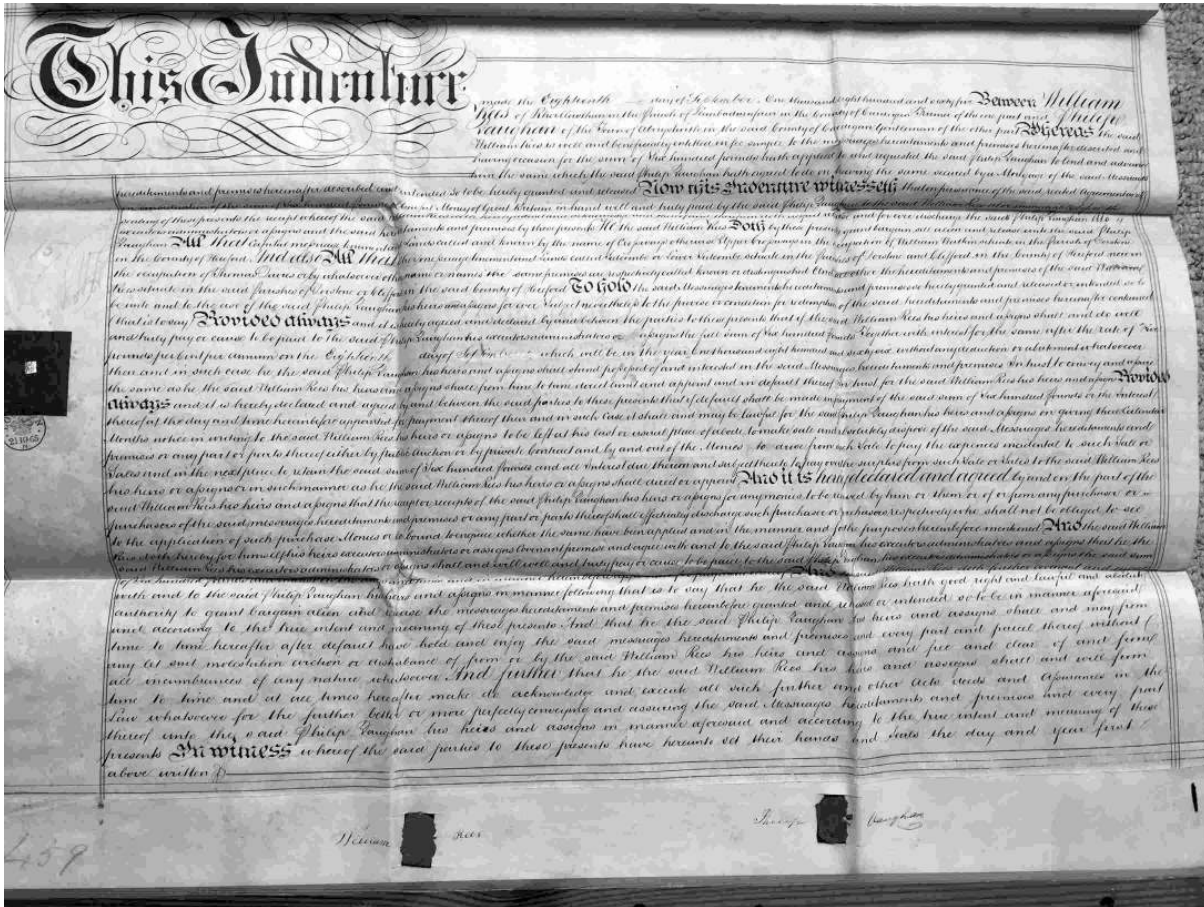 This Indenture
made the Eighteenth day of September One thousand eight hundred and sixty five Between William
Rees of in the Parish of Llanbadarnfawr in the County of Cardigan Farmer of the one part and Philip
Vaughan of the Town of Aberystwith in the said County of Cardigan Gentleman of the other part Whereas the said
William Rees is well and beneficially entitled in fee simple to the messuages hereditaments and premises hereinafter described and
having occasion for the sum of Six hundred pounds hath applied to and requested the said Philip Vaughan to lend and advance
him the same which the said Philip Vaughan hath agreed to do on having the same secured by a Mortgage of the said Messuages
hereditaments and premises hereinafter described and intended so to be hereby granted and released Now this Indenture witnesseth that in pursuance of the said recited Agreement and
Money of Great Britain in hand well and truly paid by the said Philip Vaughan to the said William Rees
of these presents the receipt whereof the said and for ever discharge the said Philip Vaughan his
executors administrators or assigns and the said hereditaments and premises by these presents He the said William Rees Doth by these presents grant bargain sell alien and release unto the said Philip
Vaughan All that capital messuage tenement and Lands called and known by the name of otherwise Upper in the occupation of William Watkin situate in the Parish of Dorstone
in the County of Hereford And also All that other messuage tenement and Lands called or Lower situate in the Parishes of Dorstone and Clifford in the County of Hereford now in
the occupation of Thomas Davies or by whatsoever other name or names the same premises are respectively called known or distinguished other the hereditaments and premises of the said William
Rees situate in the said Parishes of Dorstone or Clifford in the said County of Hereford To hold the said Messuages tenements hereditaments and premises hereby granted and released or intended so to
be unto and to the use of the said Philip Vaughan his heirs and assigns for ever Subject nevertheless to the proviso or condition for redemption of the said hereditaments and premises hereinafter contained
(that is to say) Provided always and it is hereby agreed and declared by and between the parties to these presents that if the said William Rees his heirs and assigns shall and do well
and truly pay or cause to be paid to the said Philip Vaughan his executors administrators or assigns the full sum of Six hundred pounds together with interest for the same after the rate of Five
pounds per cent per annum on the Eighteenth day of September which will be in the year One thousand eight hundred and sixty six without any deduction or abatement whatsoever
then and in such case he the said Philip Vaughan his heirs and assigns shall stand possessed of and interested in the said Messuages hereditaments and premises In trust to convey and assure
the same as he the said William Rees his heirs and assigns shall from time to time direct limit and appoint and in default thereof in trust for the said William Rees his heirs and assigns Provided
always and it is hereby declared and agreed by and between the said parties to these presents that if default shall be made in payment of the said sum of Six hundred pounds or the Interest
thereof at the day and time hereinbefore appointed for payment thereof then and in such case it shall and may be lawful for the said Philip Vaughan his heirs and assigns on giving three Calendar
Months notice in writing to the said William Rees his heirs or assigns to be left at his last or usual place of abode to make sale and absolutely dispose of the said Messuages hereditaments and
premises or any part or parts thereof either by public Auction or by private Contract and by and out of the Monies to arise from each Sale to pay the expences incidental to such Sale or
Sales and in the next place to retain the said sum of Six hundred pounds and all Interest due thereon and subject thereto to pay over the surplus from such Sale or Sales to the said William Rees
his heirs or assigns or in such manner as he the said William Rees his heirs or assigns shall direct or appoint And it is hereby declared and agreed by and on the part of the
said William Rees his heirs and assigns that the receipt or receipts of the said Philip Vaughan his heirs or assigns for any monies to be received by him or them or of or from any purchaser or
purchasers of the said messuages hereditaments and premises or any part or parts thereof shall effectually discharge such purchaser or purchasers respectively who shall not be obliged to see
to the application of such purchase Monies or be bound to enquire whether the same have been applied and in the manner and for the purposes hereinbefore mentioned And the said William
Rees doth hereby for himself his heirs executors administrators or assigns covenant promise and agree with and to the said Philip Vaughan his executors administrators and assigns that he the
said William Rees his executors administrators or assigns shall and will well and truly pay or cause to be paid to the said Philip Vaughan his executors administrators or assigns the said sum
of Six hundred pounds and interest And
with and to the said Philip Vaughan his heirs and assigns in manner following that is to say that he the said William Rees hath good right and lawful and absolute
authority to grant bargain alien and release the messuages hereditaments and premises hereinbefore granted and released or intended so to be in manner aforesaid
and according to the true intent and meaning of these presents And that he the said Philip Vaughan his heirs and assigns shall and may from
time to time hereafter after default have hold and enjoy the said messuages hereditaments and premises and every part and parcel thereof without
any let suit molestation eviction or disturbance of from or by the said William Rees his heirs and assigns and free and clear of and from
all incumbrances of any nature whatsoever And further that he the said William Rees his heirs and assigns shall and will from
time to time and at all times hereafter make do acknowledge and execute all such further and other Acts deeds and Assurances in the
Law whatsoever for the further better or more perfectly conveying and assuring the said Messuages hereditaments and premises and every part
thereof unto the said Philip Vaughan his heirs and assigns in manner aforesaid and according to the true intent and meaning of these
presents In witness whereof the said parties to these presents have hereunto set their hands and seals the day and year first
above written
William Rees
Philip Vaughan
459